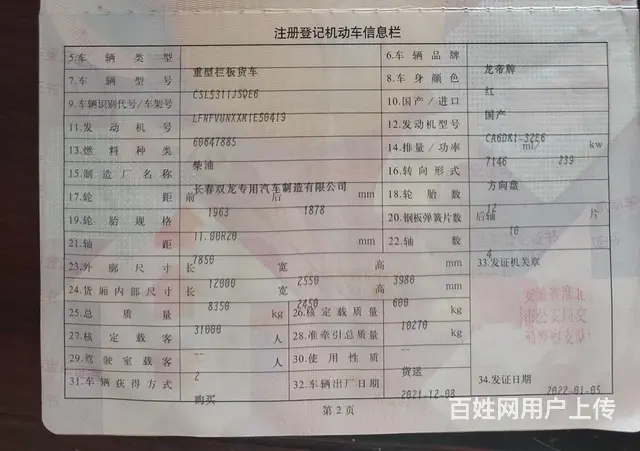 注册登记机动车信息栏
5.车辆类型 重型栏板货车 6.车辆品牌 龙帝牌
7.车辆型号 CSL5311JSQE6 8.车身颜色 红
9.车辆识别代号/车架号 LFNFVUNXXM1E50419 10.国产/进口 国产
11.发动机号 60647885 12.发动机型号 CA6DK1-32E6
13.燃料种类 柴油 14.排量/功率 7146 ml/ 239 kw
15.制造厂名称 长春双龙专用汽车制造有限公司 16.转向形式 方向盘
17.轮距 前 1963 后 1878 mm 18.轮胎数 12
19.轮胎规格 11.00R20 mm 20.钢板弹簧片数 后轴 10 片
21.轴距 7850 mm 22.轴数 4
23.外廓尺寸 长 12000 宽 2550 高 3980 mm 33.发证机关章
24.货厢内部尺寸 长 8350 宽 2450 高 600 mm
25.总质量 31000 kg 26.核定载质量 10270 kg
27.核定载客 -- 人 28.准牵引总质量 -- kg
29.驾驶室载客 2 人 30.使用性质 货运
31.车辆获得方式 购买 32.车辆出厂日期 2021-12-08 34.发证日期 2022-01-05
第2页
百姓网用户上传